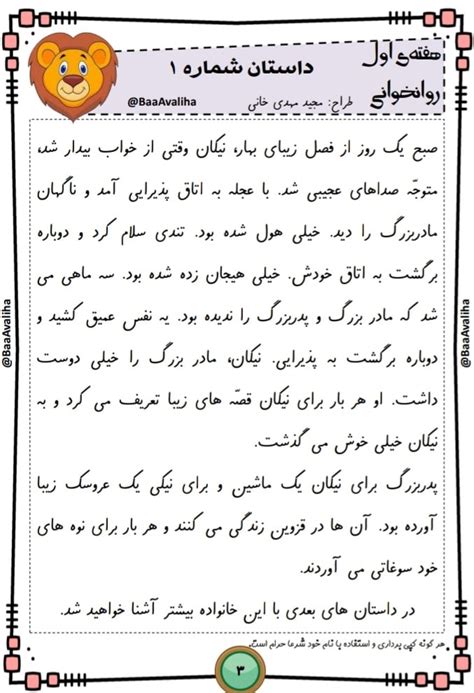 هفته‌ی اول
روانخوانی
داستان شماره ۱
طراح: مجید مهدی خانی
@BaaAvaliha
صبح یک روز از فصل زیبای بهار، نیکان وقتی از خواب بیدار شد،
متوجّه صداهای عجیبی شد. با عجله به اتاق پذیرایی آمد و ناگهان
مادربزرگ را دید. خیلی هول شده بود. تندی سلام کرد و دوباره
برگشت به اتاق خودش. خیلی هیجان زده شده بود. سه ماهی می
شد که مادر بزرگ و پدربزرگ را ندیده بود. یه نفس عمیق کشید و
دوباره برگشت به پذیرایی. نیکان، مادر بزرگ را خیلی دوست
داشت. او هر بار برای نیکان قصّه های زیبا تعریف می کرد و به
نیکان خیلی خوش می گذشت.
پدربزرگ برای نیکان یک ماشین و برای نیکی یک عروسک زیبا
آورده بود. آن ها در قزوین زندگی می کنند و هر بار برای نوه های
خود سوغاتی می آوردند.
در داستان های بعدی با این خانواده بیشتر آشنا خواهید شد.
هر گونه کپی برداری و استفاده با نام خود شرعا حرام است.
۳
@BaaAvaliha
@BaaAvaliha